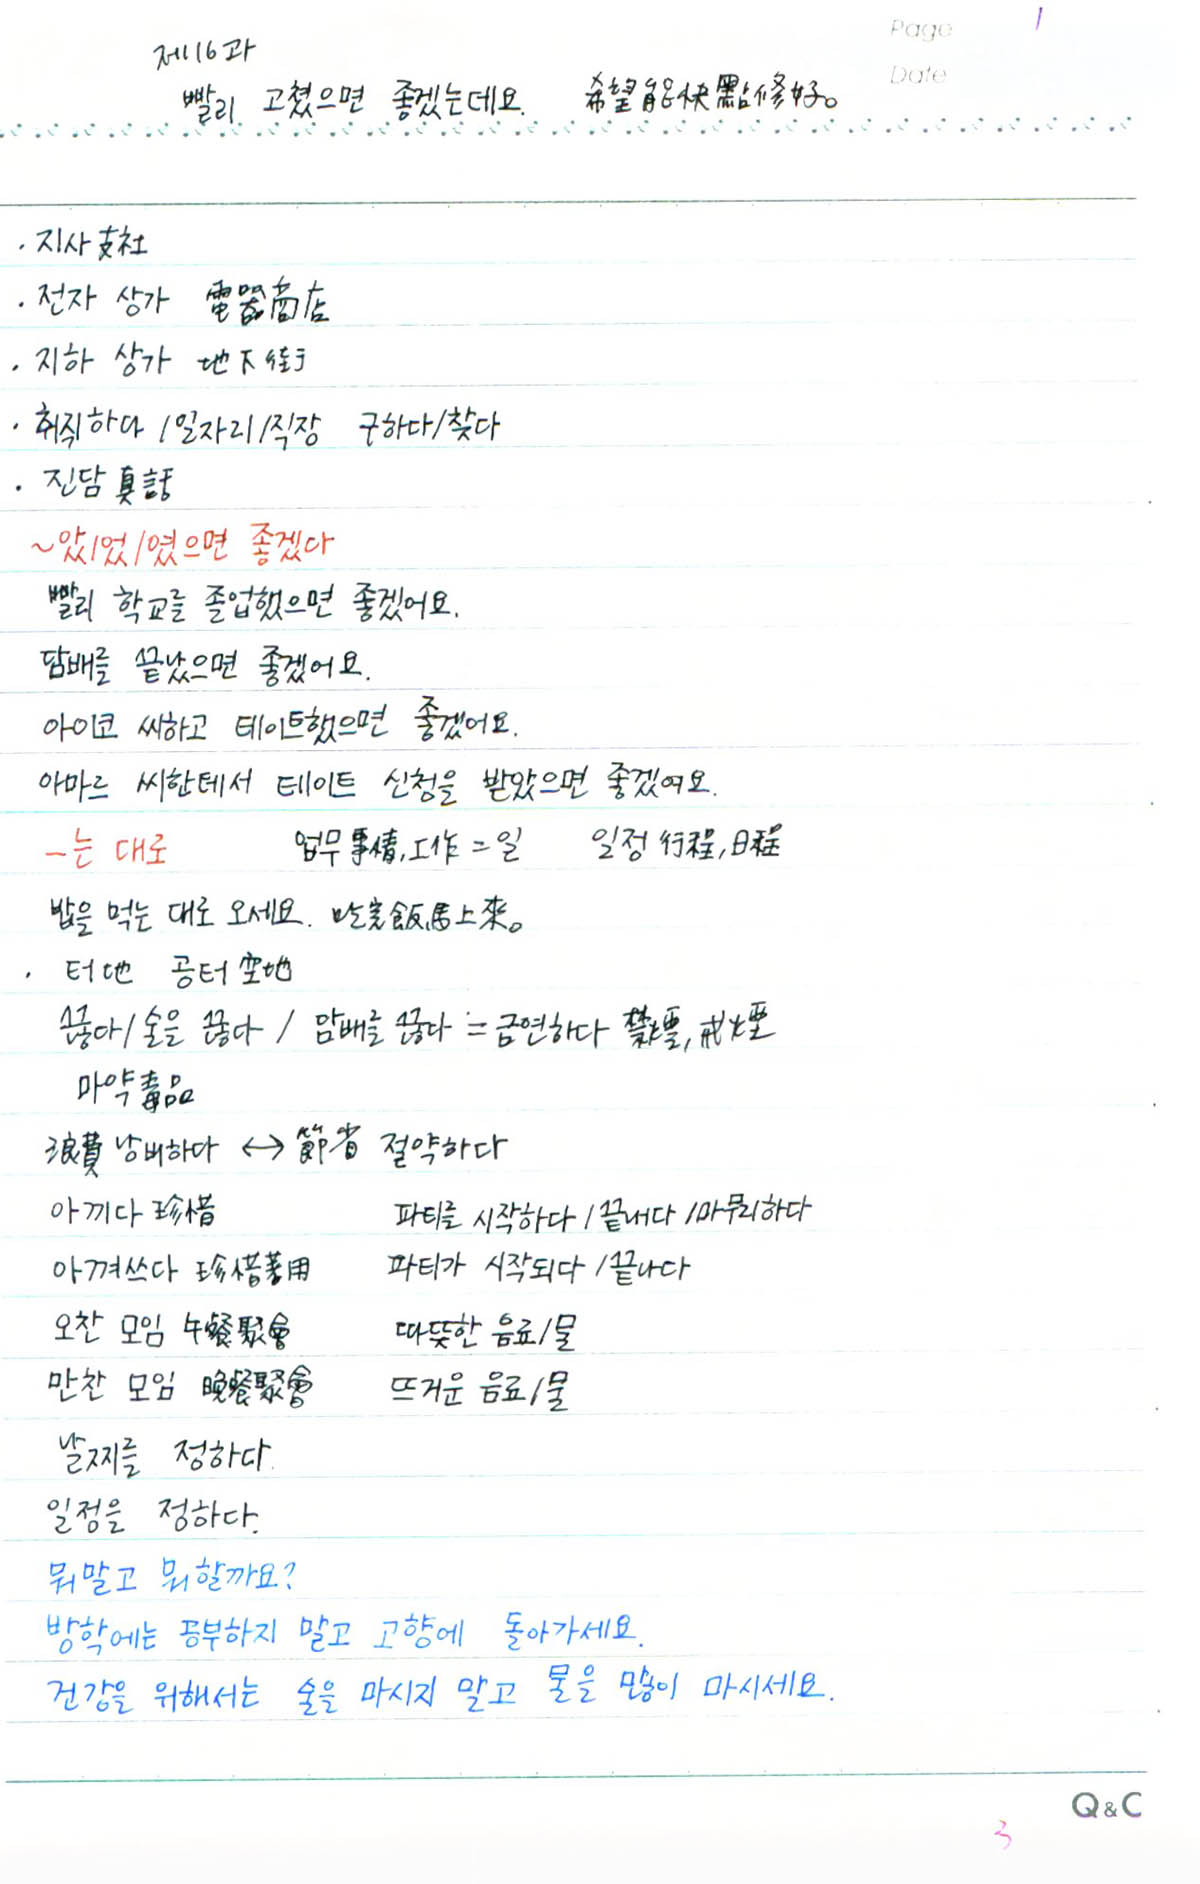 Page 1
제16과
Date
빨리 고쳤으면 좋겠는데요. 希望能快點修好。
· 지사 支社
· 전자 상가 電器商店
· 지하 상가 地下街
· 취직하다 / 일자리/직장 구하다/찾다
· 진담 真話
~았/었/였으면 좋겠다
빨리 학교를 졸업했으면 좋겠어요.
담배를 끝났으면 좋겠어요.
아이코 씨하고 테이트했으면 좋겠어요.
아마르 씨한테서 테이트 신청을 받았으면 좋겠여요.
-는 대로 업무 事情,工作 = 일 일정 行程,日程
밥을 먹는 대로 오세요. 吃完飯馬上來。
· 터 地 공터 空地
끊다/술을 끊다 / 담배를 끊다 = 금연하다 禁煙,戒煙
마약 毒品
浪費 낭비하다 ↔ 節省 절약하다
아끼다 珍惜 파티를 시작하다 /끝내다 /마무리하다
아껴쓰다 珍惜著用 파티가 시작되다 /끝나다
오찬 모임 午餐聚會 따뜻한 음료/물
만찬 모임 晚餐聚會 뜨거운 음료/물
날짜를 정하다.
일정을 정하다.
뭐말고 뭐할까요?
방학에는 공부하지 말고 고향에 돌아가세요.
건강을 위해서는 술을 마시지 말고 물을 많이 마시세요.
Q&C
3